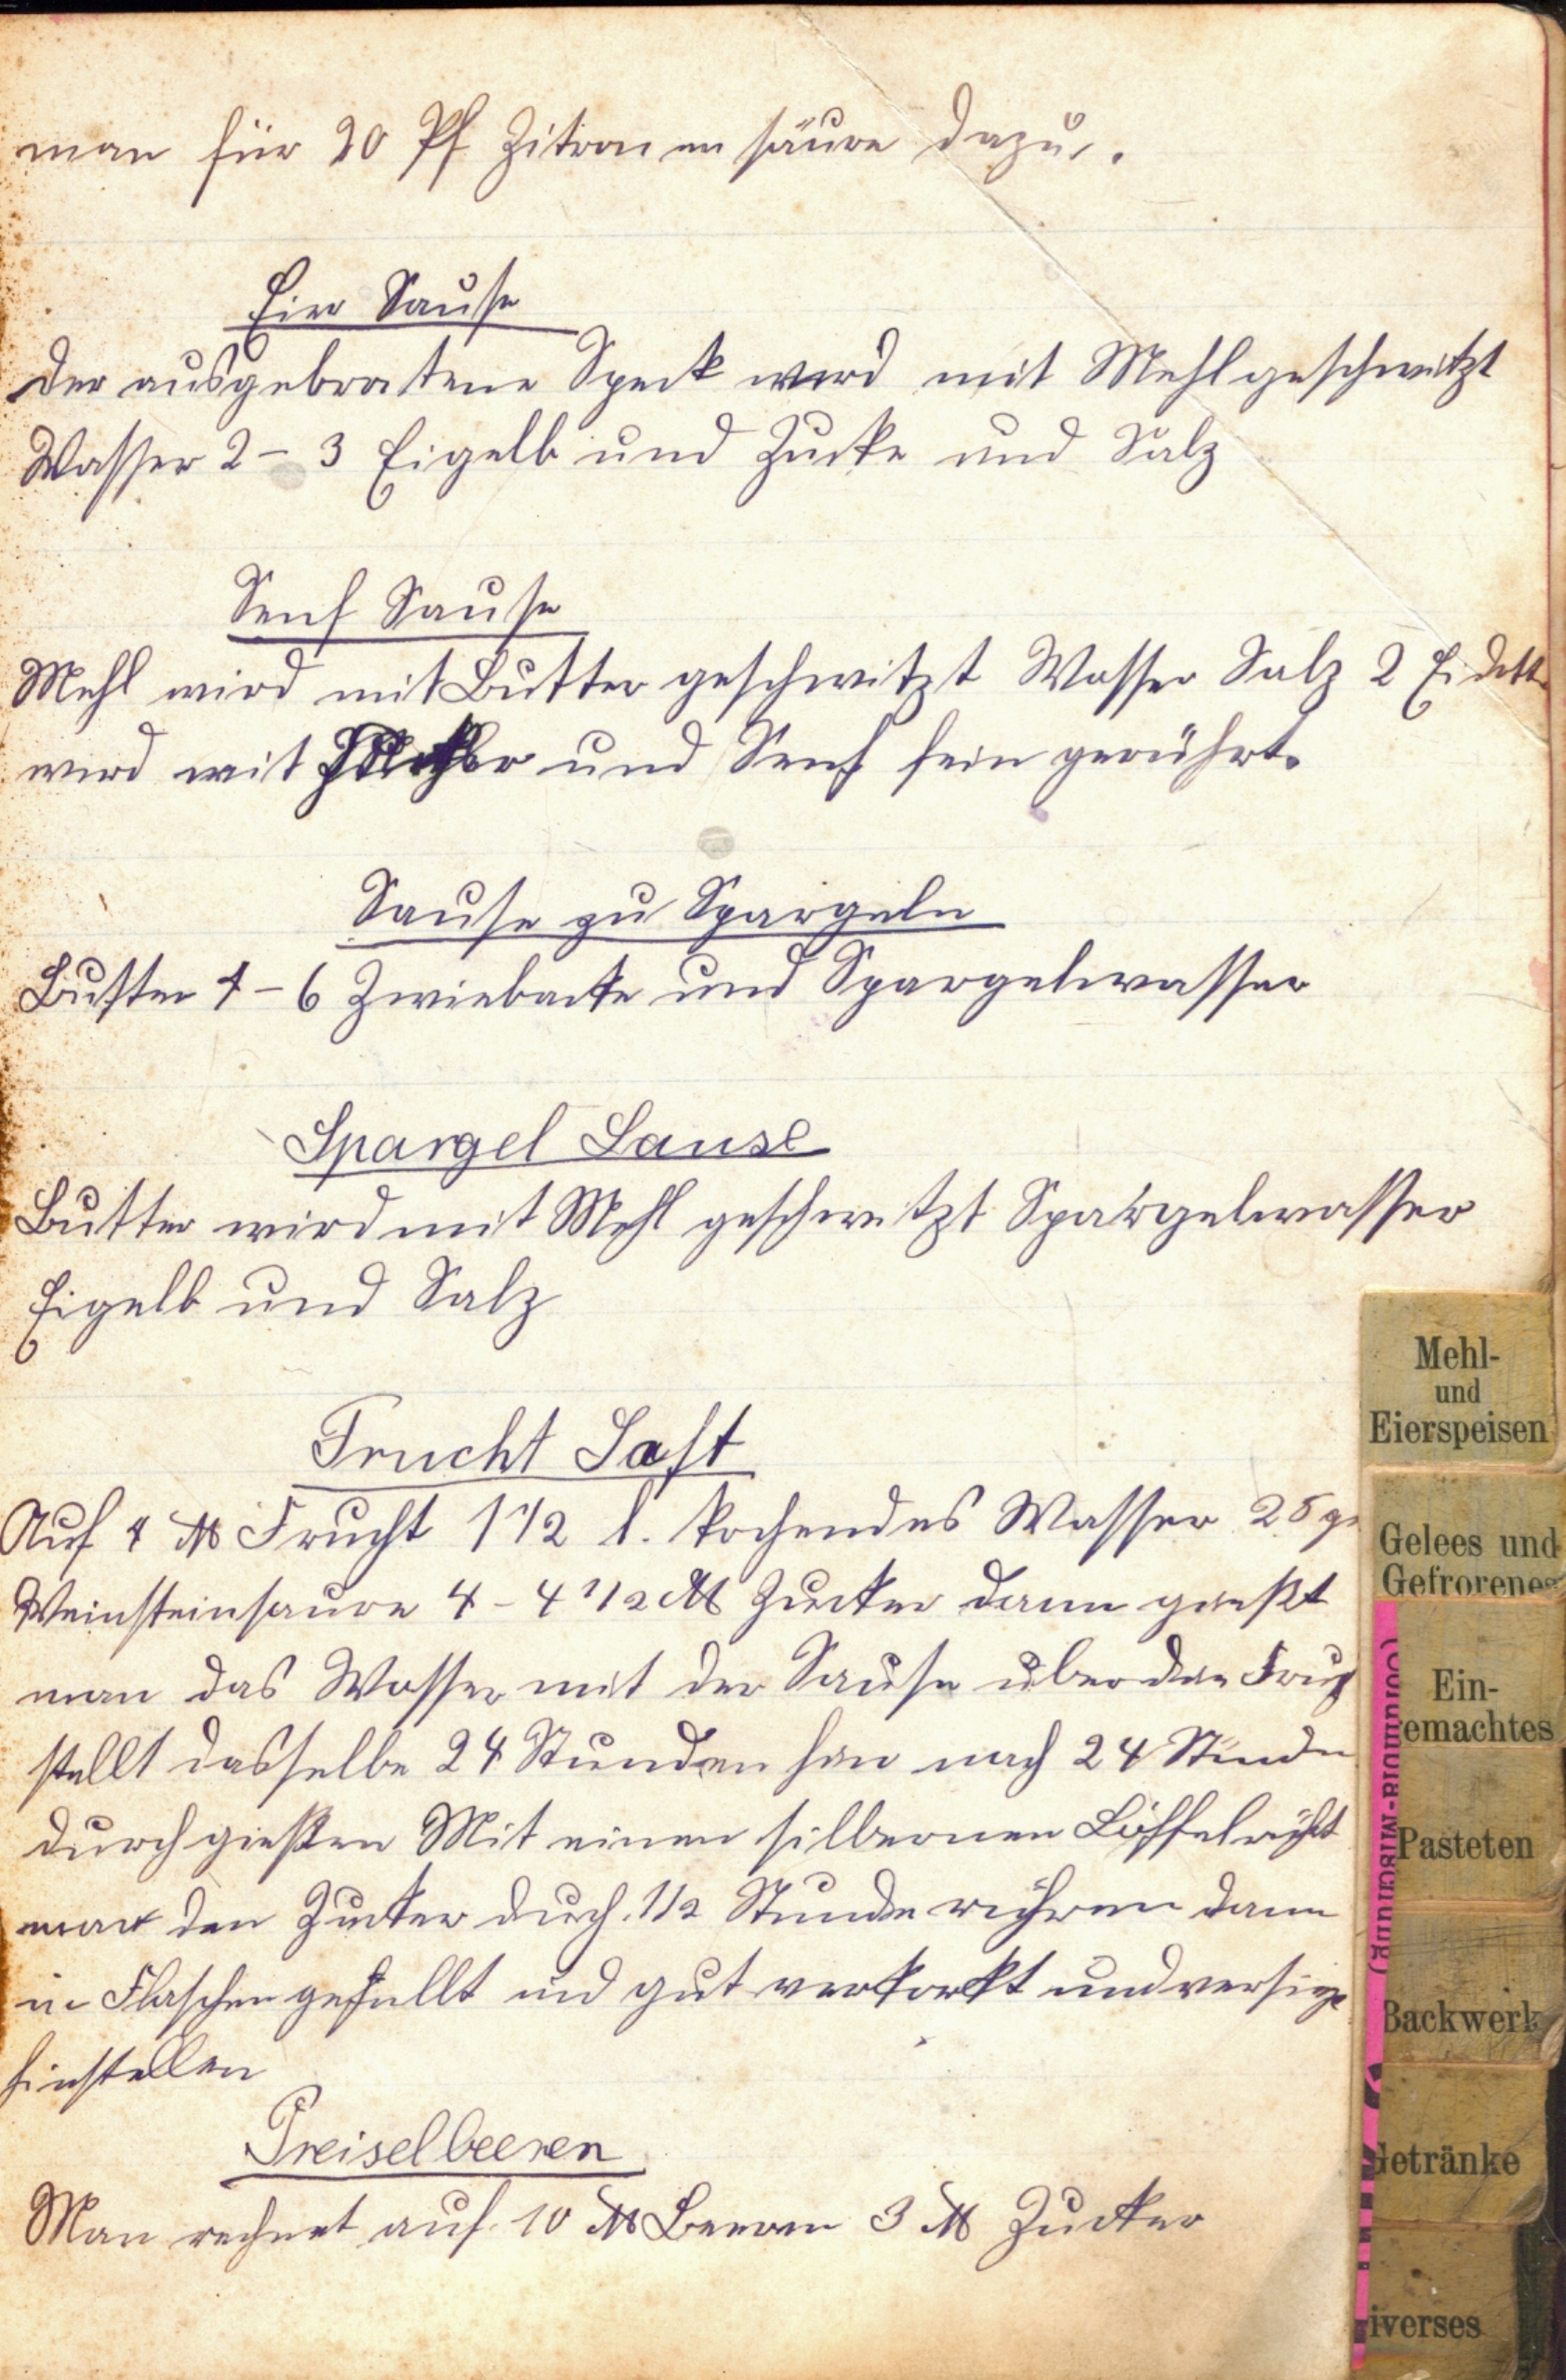 man für 20 Pf Zitronensäure dazu.
Eier Sause
Der ausgebratene Speck wird mit Mehl geschwitzt
Wasser 2 – 3 Eigelb und Zucke und Salz
Senf Sause
Mehl wird mit Butter geschwitzt Wasser Salz 2 Eidott
wird mit und Senf fein gerührt.
Sause zu Spargeln
Butter 4 – 6 Zwiebacke und Spargelwasser
Spargel Sause
Butter wird mit Mehl geschwitzt Spargelwasser
Eigelb und Salz
Frucht Saft
Auf 4 ℔ Frucht 1 1/2 l. kochendes Wasser 25 gr
Weinsteinsaure 4 – 4 1/2 ℔ Zucker dann gießt
man das Wasser mit der Sause uber den Fruch
stellt dasselbe 24 Stunden hin nach 24 Stunden
durchgießen Mit einen silbernen Löffel rührt
man den Zucker durch. 1/2 Stunde rühren dann
in Flaschen gefullt und gut verkorkt und versieg
hinstellen
Preiselbeeren
Man rechnet auf 10 ℔ Beeren 3 ℔ Zucker
Mehl-
und
Eierspeisen
Gelees und
Gefrorenes
Ein-
gemachtes
Pasteten
Backwerk
Getränke
iverses